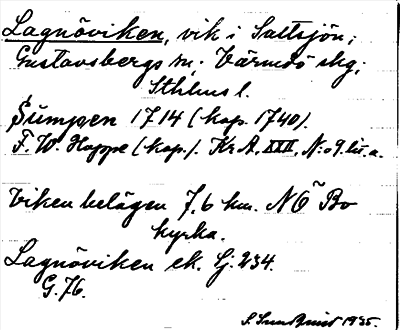 Lagnöviken, vik i Saltsjön;
Gustavsbergs sn; Värmdö skg;
Sthlms l.
Sumpen 1714 (kop. 1740).
F. W. Hoppe (kop.). Kr A. XXII, N:o 9. lit. a.
Viken belägen 7,6 km. NÖ Bo
kyrka.
Lagnöviken ek. Gj. 234.
G. 76.
S. Sundquist 1935